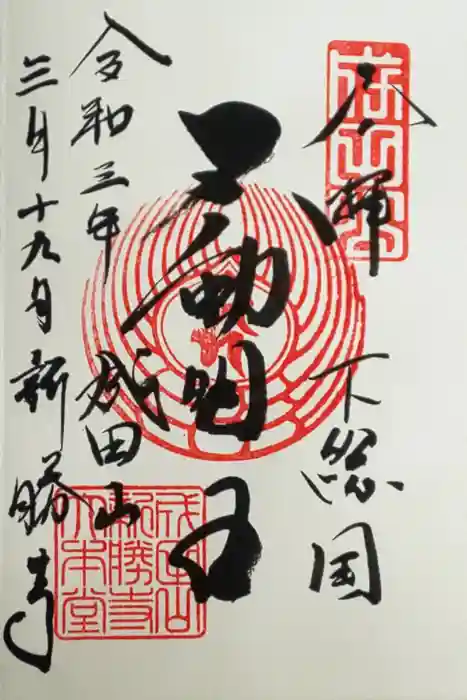 奉拝
下総国
不動明王
令和三年
成田山
三月十九日
新勝寺
成田山
新勝寺
大本堂